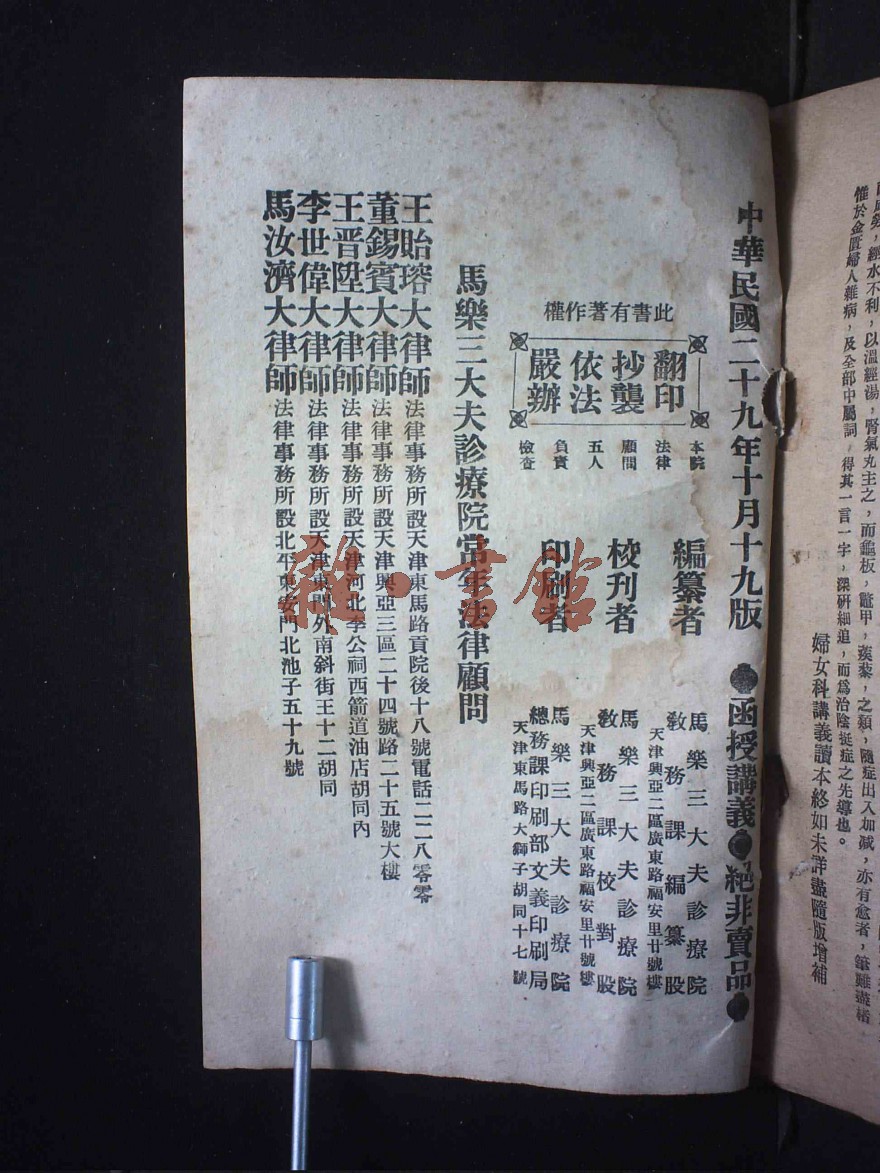 但於金匱婦人雜病，及全部中屬詞，得其一言一字，深研細追，而為治陰挺症之先導也。
婦女科講義讀本終如未詳盡隨版增補
中華民國二十九年十月十九版 ●函授講義●絕非賣品●
此書有著作權
翻印
抄襲
依法
嚴辦
本院
法律
顧問
五人
負責
檢查
編纂者
馬樂三大夫診療院
教務課編纂股
天津興亞二區廣東路福安里廿號樓
校刊者
馬樂三大夫診療院
教務課校對股
天津興亞二區廣東路福安里廿號樓
印刷者
馬樂三大夫診療院
總務課印刷部文義印刷局
天津東馬路大獅子胡同十七號
馬樂三大夫診療院常年法律顧問
王貽瑢大律師法律事務所設天津東馬路貢院後十八號電話二二八零零
董錫賓大律師法律事務所設天津興亞三區二十四號路二十五號大樓
王晋陞大律師法律事務所設天津河北李公祠西箭道油店胡同內
李世偉大律師法律事務所設天津東門外南斜街王十二胡同
馬汝濟大律師法律事務所設北平東安門北池子五十九號
雜·書館